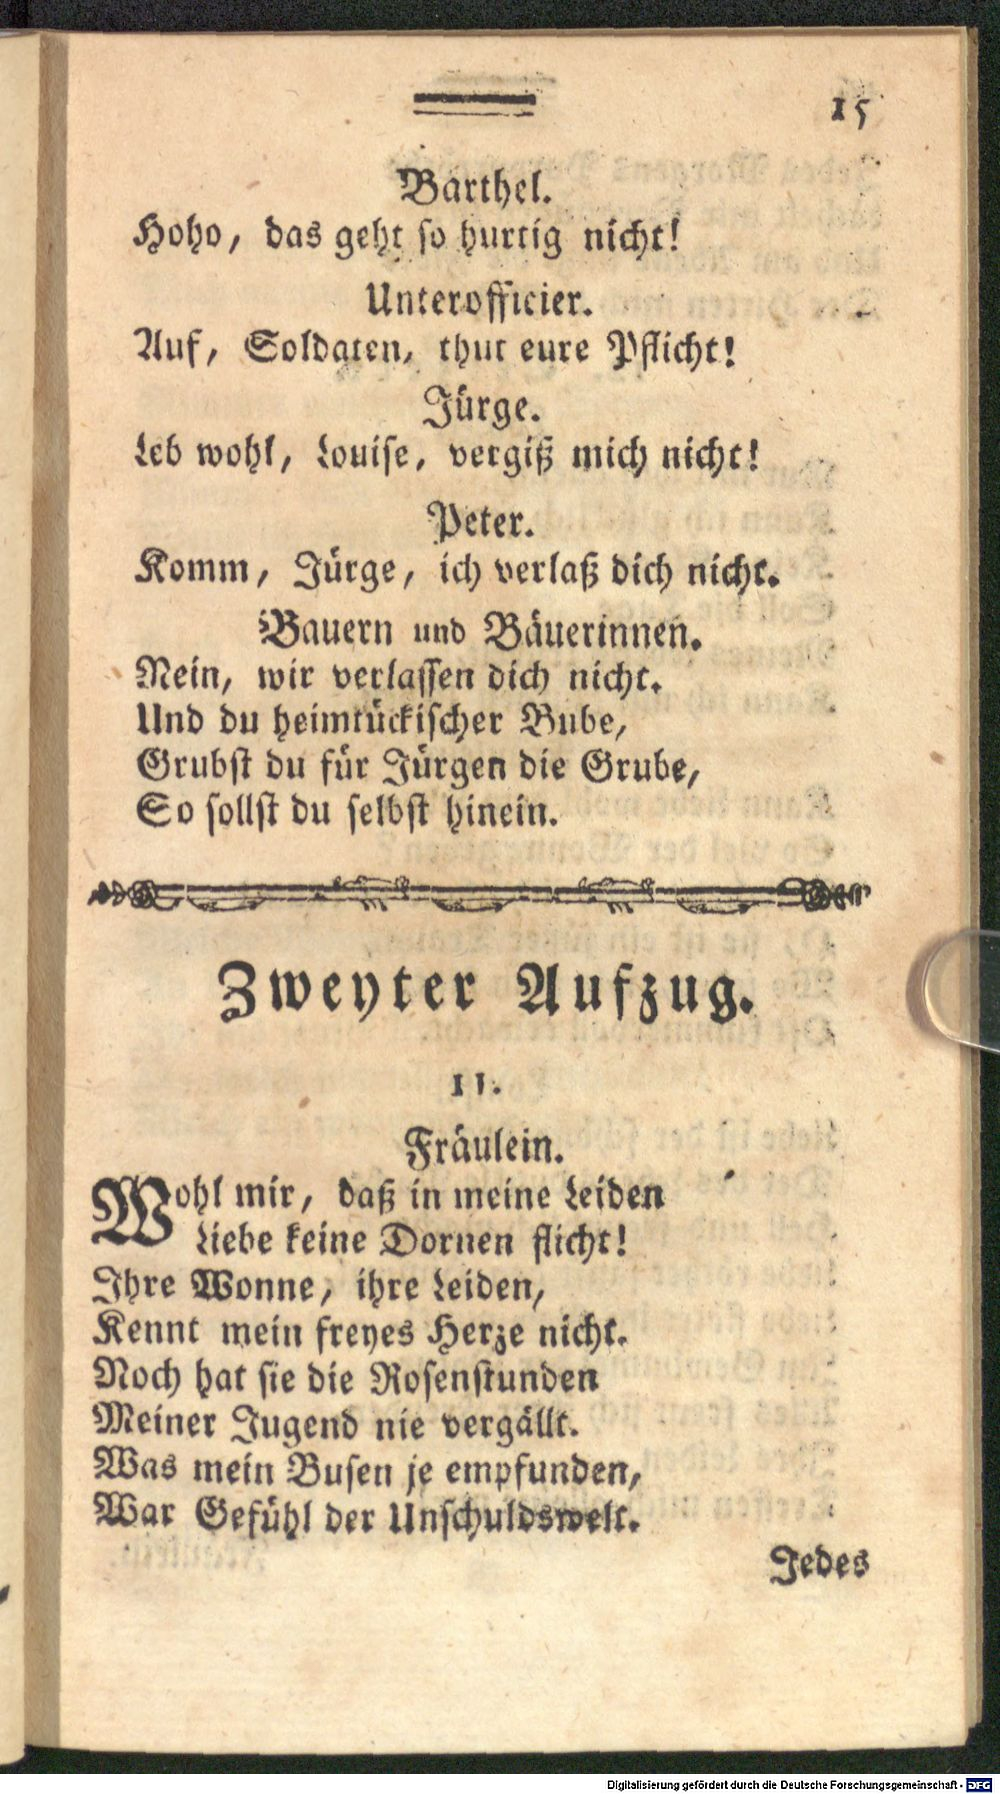 15
Barthel.
Hoho, das geht so hurtig nicht!
Unterofficier.
Auf, Soldaten, thut eure Pflicht!
Jürge.
Leb wohl, Louise, vergiß mich nicht!
Peter.
Komm, Jürge, ich verlaß dich nicht.
Bauern und Bäuerinnen.
Nein, wir verlassen dich nicht.
Und du heimtückischer Bube,
Grubst du für Jürgen die Grube,
So sollst du selbst hinein.
Zweyter Aufzug.
11.
Fräulein.
Wohl mir, daß in meine Leiden
Liebe keine Dornen flicht!
Ihre Wonne, ihre Leiden,
Kennt mein freyes Herze nicht.
Noch hat sie die Rosenstunden
Meiner Jugend nie vergällt.
Was mein Busen je empfunden,
War Gefühl der Unschuldswelt.
Jedes
Digitalisierung gefördert durch die Deutsche Forschungsgemeinschaft - DFG